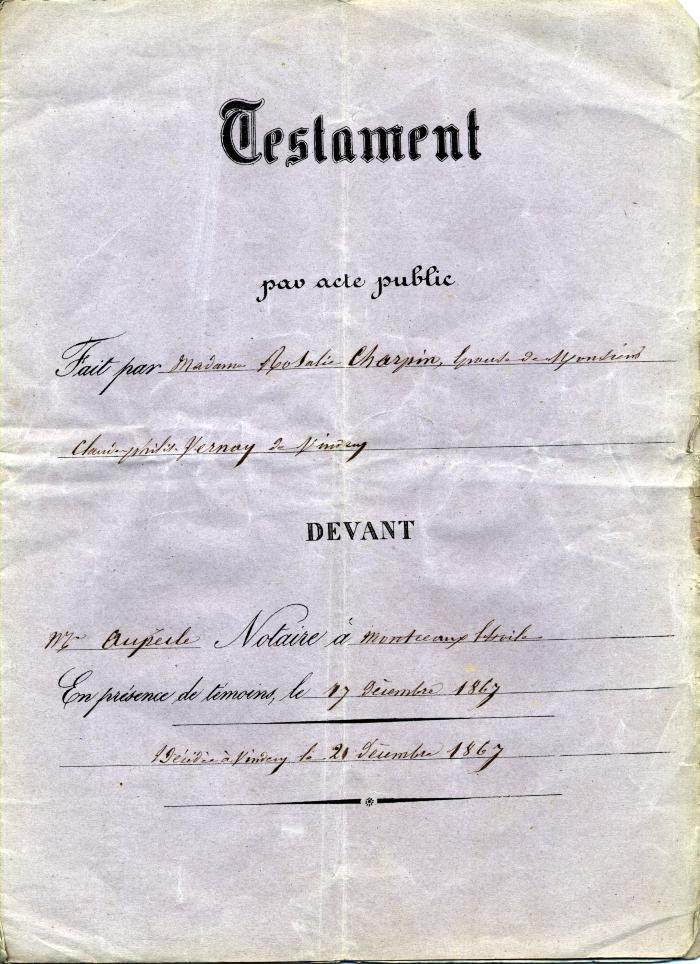 Testament
par acte public
Fait par Madame Rosalie Charpin, Epouse de Monsieur
Claude Vernay de Vindecy
DEVANT
Me Aupècle Notaire à Montceaux l'étoile
En présence de témoins, le 17 Décembre 1867
Décédée à Vindecy le 21 Décembre 1867